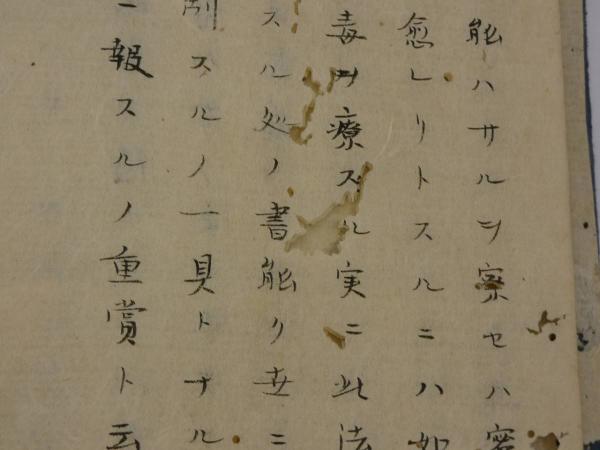 能ハサルヲ察セハ容
愈レリトスルニハ如
毒ヲ療スル実ニ此法
スル処ノ書能ク世ニ
スルノ一具トナル
報スルノ重賞ト云